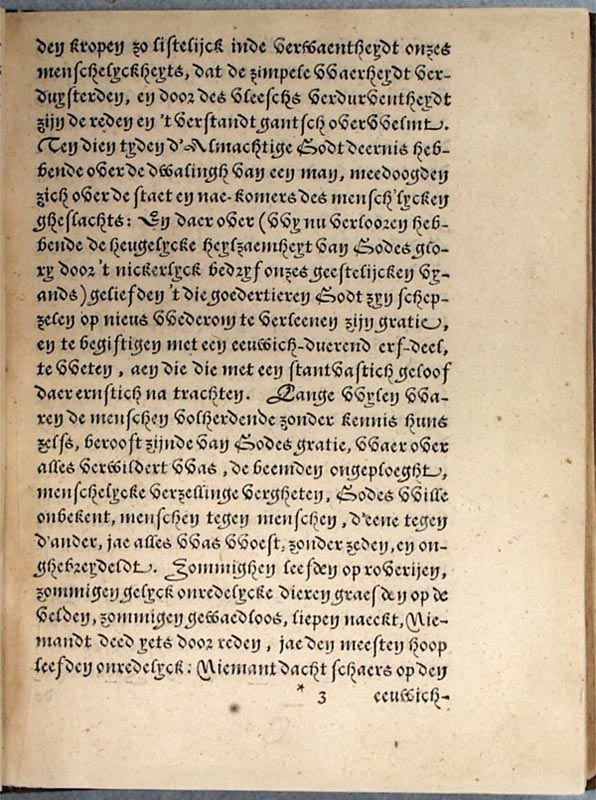 den kropen zo listelijck inde verwaentheydt onzes
menschelyckheyts, dat de zimpele VVaerheydt ver-
duysterden, en door des vleeschs verdurventheydt
zijn de reden en 't verstandt gantsch overVVelmt.
Ten dien tyden d'Almachtige Godt deernis heb-
bende over de dwalingh van een man, meedoogden
zich over de staet en nae-komers des mensch'lycken
gheslachts: En daer over (VVy nu verlooren heb-
bende de heugelycke heylzaemheyt van Godes glo-
ry door 't nickerlyck bedryf onzes geestelijcken vy-
ands) geliefden 't die goedertieren Godt zyn schep-
zelen op nieus VVederom te verleenen zijn gratie,
en te begiftigen met een eeuwich-duerend erf-deel,
te VVeten, aen die die met een stantvastich geloof
daer ernstich na trachten. Lange VVylen VVa-
ren de menschen volherdende zonder kennis huns
zelfs, berooft zijnde van Godes gratie, VVaer over
alles verwildert VVas, de beemden ongeploeght,
menschelycke verzellinge vergheten, Godes VVille
onbekent, menschen tegen menschen, d'eene tegen
d'ander, jae alles VVas VVoest, zonder zeden, en on-
ghebreydeldt. Zommighen leefden op roverijen,
zommigen gelyck onredelycke dieren graesden op de
velden, zommigen gewaedloos, liepen naeckt, Nie-
mandt deed yets door reden, jae den meesten hoop
leefden onredelyck: Niemant dacht schaers op den
* 3 eeuwich-